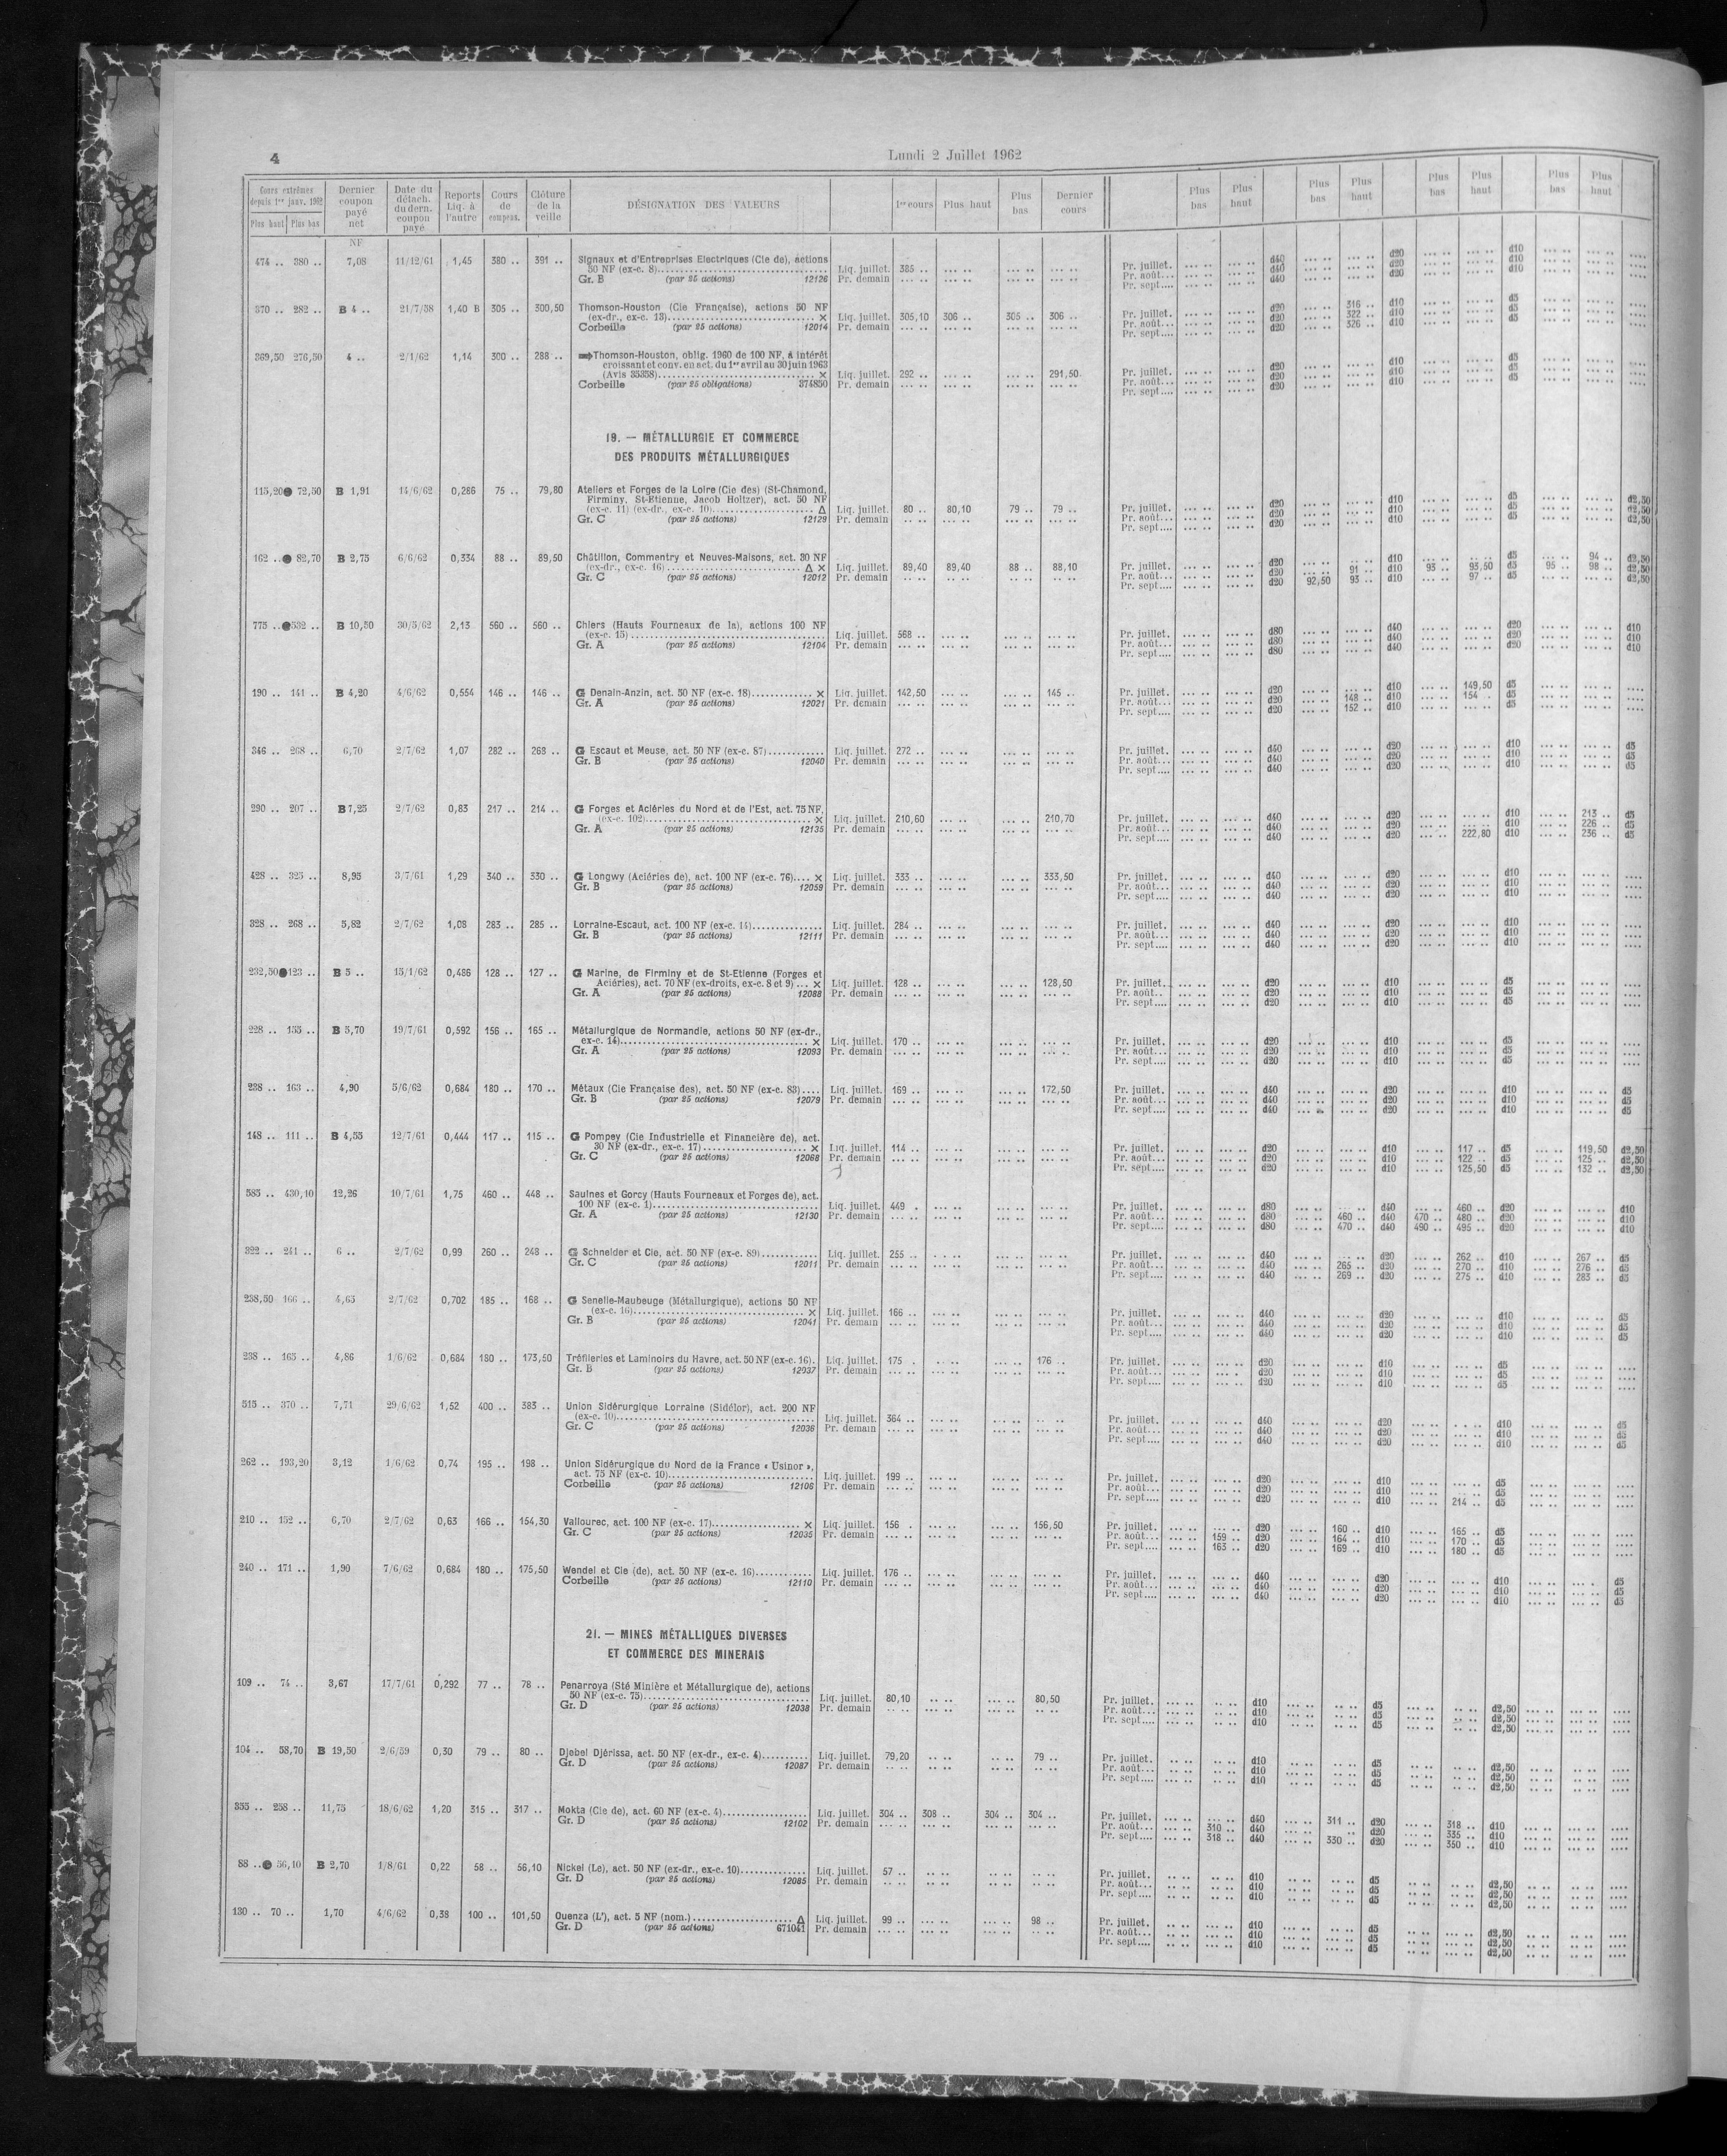 4
Lundi 2 Juillet 1962
Cours extrêmes depuis 1er janv. 1962 Plus haut Plus bas | Dernier coupon payé net | Date du détach. du dern. coupon payé | Reports Liq. à l'autre | Cours de compens. | Clôture de la veille | DÉSIGNATION DES VALEURS | 1er cours | Plus haut | Plus bas | Dernier cours | Plus bas | Plus haut | Plus bas | Plus haut | Plus bas | Plus haut | Plus bas | Plus haut
NF
474 .. 380 .. 7,08 11/12/61 1,45 380 .. 391 .. Signaux et d'Entreprises Electriques (Cie de), actions
50 NF (ex-c. 8) Liq. juillet. 385 .. Pr. juillet. d40 d20 d10
Gr. B (par 25 actions) 12126 Pr. demain Pr. août... d40 d20 d10
Pr. sept.... d40 d20 d10
370 .. 282 .. B 4 .. 21/7/58 1,40 B 305 .. 300,50 Thomson-Houston (Cie Française), actions 50 NF
(ex-dr., ex-c. 13) × Liq. juillet. 305,10 306 .. 305 .. 306 .. Pr. juillet. d20 316 .. d10 d5
Corbeille (par 25 actions) 12014 Pr. demain Pr. août... d20 322 .. d10 d5
Pr. sept.... d20 326 .. d10 d5
369,50 276,50 4 .. 2/1/62 1,14 300 .. 288 .. Thomson-Houston, oblig. 1960 de 100 NF, à intérêt
croissant et conv. en act. du 1er avril au 30 juin 1963
(Avis 35358) × Liq. juillet. 292 .. 291,50 Pr. juillet. d20 d10 d5
Corbeille (par 25 obligations) 374850 Pr. demain Pr. août... d20 d10 d5
Pr. sept.... d20 d10 d5
19. — MÉTALLURGIE ET COMMERCE
DES PRODUITS MÉTALLURGIQUES
115,20 72,50 B 1,91 14/6/62 0,286 75 .. 79,80 Ateliers et Forges de la Loire (Cie des) (St-Chamond,
Firminy, St-Etienne, Jacob Holtzer), act. 50 NF
(ex-c. 11) (ex-dr., ex-c. 10) Δ Liq. juillet. 80 .. 80,10 79 .. 79 .. Pr. juillet. d20 d10 d5 d2,50
Gr. C (par 25 actions) 12129 Pr. demain Pr. août... d20 d10 d5 d2,50
Pr. sept.... d20 d10 d5 d2,50
162 .. 82,70 B 2,75 6/6/62 0,334 88 .. 89,50 Châtillon, Commentry et Neuves-Maisons, act. 30 NF
(ex-dr., ex-c. 16) Δ × Liq. juillet. 89,40 89,40 88 .. 88,10 Pr. juillet. d20 d10 d5 94 .. d2,50
Gr. C (par 25 actions) 12012 Pr. demain Pr. août... d20 91 .. d10 93 .. 93,50 d5 95 .. 98 .. d2,50
Pr. sept.... d20 92,50 93 .. d10 97 .. d5 d2,50
775 .. 532 .. B 10,50 30/5/62 2,13 560 .. 560 .. Chiers (Hauts Fourneaux de la), actions 100 NF
(ex-c. 15) Liq. juillet. 568 .. Pr. juillet. d80 d40 d20 d10
Gr. A (par 25 actions) 12104 Pr. demain Pr. août... d80 d40 d20 d10
Pr. sept.... d80 d40 d20 d10
190 .. 141 .. B 4,20 4/6/62 0,554 146 .. 146 .. G Denain-Anzin, act. 50 NF (ex-c. 18) × Liq. juillet. 142,50 145 .. Pr. juillet. d20 d10 149,50 d5
Gr. A (par 25 actions) 12021 Pr. demain Pr. août... d20 148 .. d10 154 .. d5
Pr. sept.... d20 152 .. d10 d5
346 .. 268 .. 6,70 2/7/62 1,07 282 .. 268 .. G Escaut et Meuse, act. 50 NF (ex-c. 87) Liq. juillet. 272 .. Pr. juillet. d40 d20 d10 d5
Gr. B (par 25 actions) 12040 Pr. demain Pr. août... d40 d20 d10 d5
Pr. sept.... d40 d20 d10 d5
290 .. 207 .. B 7,25 2/7/62 0,83 217 .. 214 .. G Forges et Aciéries du Nord et de l'Est, act. 75 NF,
(ex-c. 102) × Liq. juillet. 210,60 210,70 Pr. juillet. d40 d20 d10 213 .. d5
Gr. A (par 25 actions) 12135 Pr. demain Pr. août... d40 d20 d10 226 .. d5
Pr. sept.... d40 d20 222,80 d10 236 .. d5
428 .. 325 .. 8,95 3/7/61 1,29 340 .. 330 .. G Longwy (Aciéries de), act. 100 NF (ex-c. 76) × Liq. juillet. 333 .. 333,50 Pr. juillet. d40 d20 d10
Gr. B (par 25 actions) 12059 Pr. demain Pr. août... d40 d20 d10
Pr. sept.... d40 d20 d10
328 .. 268 .. 5,82 2/7/62 1,08 283 .. 285 .. Lorraine-Escaut, act. 100 NF (ex-c. 14) Liq. juillet. 284 .. Pr. juillet. d40 d20 d10
Gr. B (par 25 actions) 12111 Pr. demain Pr. août... d40 d20 d10
Pr. sept.... d40 d20 d10
232,50 123 .. B 5 .. 15/1/62 0,486 128 .. 127 .. G Marine, de Firminy et de St-Etienne (Forges et
Aciéries), act. 70 NF (ex-droits, ex-c. 8 et 9) ... × Liq. juillet. 128 .. 128,50 Pr. juillet. d20 d10 d5
Gr. A (par 25 actions) 12088 Pr. demain Pr. août.. d20 d10 d5
Pr. sept.... d20 d10 d5
228 .. 155 .. B 5,70 19/7/61 0,592 156 .. 165 .. Métallurgique de Normandie, actions 50 NF (ex-dr.,
ex-c. 14) × Liq. juillet. 170 .. Pr. juillet. d20 d10 d5
Gr. A (par 25 actions) 12093 Pr. demain Pr. août... d20 d10 d5
Pr. sept.... d20 d10 d5
238 .. 163 .. 4,90 5/6/62 0,684 180 .. 170 .. Métaux (Cie Française des), act. 50 NF (ex-c. 83) Liq. juillet. 169 .. 172,50 Pr. juillet. d40 d20 d10 d5
Gr. B (par 25 actions) 12079 Pr. demain Pr. août... d40 d20 d10 d5
Pr. sept.... d40 d20 d10 d5
148 .. 111 .. B 4,55 12/7/61 0,444 117 .. 115 .. G Pompey (Cie Industrielle et Financière de), act.
30 NF (ex-dr., ex-c. 17) × Liq. juillet. 114 .. Pr. juillet. d20 d10 117 .. d5 119,50 d2,50
Gr. C (par 25 actions) 12068 Pr. demain Pr. août... d20 d10 122 .. d5 125 .. d2,50
Pr. sept.... d20 d10 125,50 d5 132 .. d2,50
585 .. 430,10 12,26 10/7/61 1,75 460 .. 448 .. Saulnes et Gorcy (Hauts Fourneaux et Forges de), act.
100 NF (ex-c. 1) Liq. juillet. 449 . Pr. juillet. d80 d40 460 .. d20 d10
Gr. A (par 25 actions) 12130 Pr. demain Pr. août... d80 460 .. d40 470 .. 480 .. d20 d10
Pr. sept.... d80 470 .. d40 490 .. 495 .. d20 d10
322 .. 241 .. 6 .. 2/7/62 0,99 260 .. 248 .. G Schneider et Cie, act. 50 NF (ex-c. 89) Liq. juillet. 255 .. Pr. juillet. d40 d20 262 .. d10 267 .. d5
Gr. C (par 25 actions) 12011 Pr. demain Pr. août... d40 265 .. d20 270 .. d10 276 .. d5
Pr. sept.... d40 269 .. d20 275 .. d10 283 .. d5
238,50 166 .. 4,65 2/7/62 0,702 185 .. 168 .. G Senelle-Maubeuge (Métallurgique), actions 50 NF
(ex-c. 16) × Liq. juillet. 166 .. Pr. juillet. d40 d20 d10 d5
Gr. B (par 25 actions) 12041 Pr. demain Pr. août... d40 d20 d10 d5
Pr. sept.... d40 d20 d10 d5
238 .. 165 .. 4,86 1/6/62 0,684 180 .. 173,50 Tréfileries et Laminoirs du Havre, act. 50 NF (ex-c. 16). Liq. juillet. 175 . 176 .. Pr. juillet. d20 d10 d5
Gr. B (par 25 actions) 12037 Pr. demain Pr. août... d20 d10 d5
Pr. sept.... d20 d10 d5
515 .. 370 .. 7,71 29/6/62 1,52 400 .. 383 .. Union Sidérurgique Lorraine (Sidélor), act. 200 NF
(ex-c. 10) Liq. juillet. 364 .. Pr. juillet. d40 d20 d10 d5
Gr. C (par 25 actions) 12036 Pr. demain Pr. août... d40 d20 d10 d5
Pr. sept.... d40 d20 d10 d5
262 .. 193,20 3,12 1/6/62 0,74 195 .. 198 .. Union Sidérurgique du Nord de la France « Usinor »,
act. 75 NF (ex-c. 10) Liq. juillet. 199 .. Pr. juillet. d20 d10 d5
Corbeille (par 25 actions) 12106 Pr. demain Pr. août... d20 d10 d5
Pr. sept.... d20 d10 214 .. d5
210 .. 152 .. 6,70 2/7/62 0,63 166 .. 154,30 Vallourec, act. 100 NF (ex-c. 17) × Liq. juillet. 156 . 156,50 Pr. juillet. d20 160 .. d10 165 .. d5
Gr. C (par 25 actions) 12035 Pr. demain Pr. août... 159 .. d20 164 .. d10 170 .. d5
Pr. sept.... 163 .. d20 169 .. d10 180 .. d5
240 .. 171 .. 1,90 7/6/62 0,684 180 .. 175,50 Wendel et Cie (de), act. 50 NF (ex-c. 16) Liq. juillet. 176 .. Pr. juillet. d40 d20 d10 d5
Corbeille (par 25 actions) 12110 Pr. demain Pr. août... d40 d20 d10 d5
Pr. sept.... d40 d20 d10 d5
21. — MINES MÉTALLIQUES DIVERSES
ET COMMERCE DES MINERAIS
109 .. 74 .. 3,67 17/7/61 0,292 77 .. 78 .. Penarroya (Sté Minière et Métallurgique de), actions
50 NF (ex-c. 75) Liq. juillet. 80,10 80,50 Pr. juillet. d10 d5 d2,50
Gr. D (par 25 actions) 12038 Pr. demain Pr. août... d10 d5 d2,50
Pr. sept.... d10 d5 d2,50
104 .. 58,70 B 19,50 2/6/59 0,30 79 .. 80 .. Djebel Djérissa, act. 50 NF (ex-dr., ex-c. 4) Liq. juillet. 79,20 79 .. Pr. juillet. d10 d5 d2,50
Gr. D (par 25 actions) 12087 Pr. demain Pr. août... d10 d5 d2,50
Pr. sept.... d10 d5 d2,50
355 .. 258 .. 11,75 18/6/62 1,20 315 .. 317 .. Mokta (Cie de), act. 60 NF (ex-c. 4) Liq. juillet. 304 .. 308 .. 304 .. 304 .. Pr. juillet. d40 311 .. d20 318 .. d10
Gr. D (par 25 actions) 12102 Pr. demain Pr. août... 310 .. d40 d20 335 .. d10
Pr. sept.... 318 .. d40 330 .. d20 350 .. d10
88 .. 56,10 B 2,70 1/8/61 0,22 58 .. 56,10 Nickel (Le), act. 50 NF (ex-dr., ex-c. 10) Liq. juillet. 57 .. Pr. juillet. d10 d5 d2,50
Gr. D (par 25 actions) 12085 Pr. demain Pr. août... d10 d5 d2,50
Pr. sept.... d10 d5 d2,50
130 .. 70 .. 1,70 4/6/62 0,38 100 .. 101,50 Ouenza (L'), act. 5 NF (nom.) Δ Liq. juillet. 99 .. 98 .. Pr. juillet. d10 d5 d2,50
Gr. D (par 25 actions) 671041 Pr. demain Pr. août... d10 d5 d2,50
Pr. sept.... d10 d5 d2,50